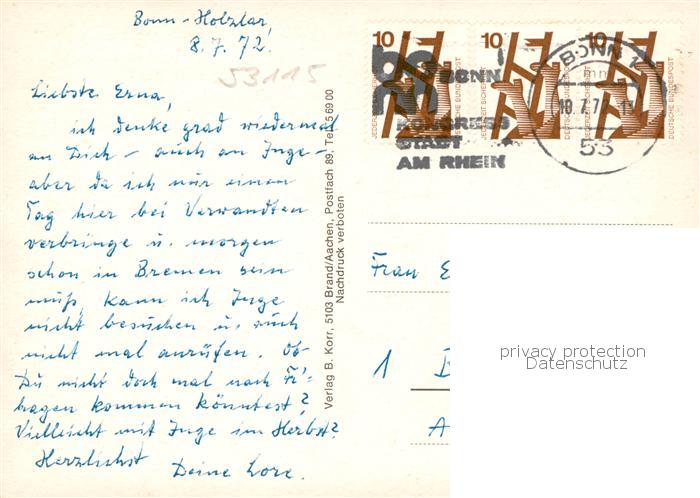 Bonn-Holzlar,
8.7.72.
53115
Liebste Erna,
ich denke grad wiedermal
an Dich – auch an Inge –
aber da ich nur einen
Tag hier bei Verwandten
verbringe u. morgen
schon in Bremen sein
muß, kann ich Inge
nicht besuchen u. auch
nicht mal anrufen. Ob
Du nicht doch mal nach
kommen könntest?
Vielleicht mit Inge im Herbst?
Herzlichst
Deine Lore.
Verlag B. Korr, 5103 Brand/Aachen, Postfach 89, Tel. 5 69 00
Nachdruck verboten
10 10 10
JEDERZEIT SICHERHEIT
DEUTSCHE BUNDESPOST
BONN
KONGRESS
STADT
AM RHEIN
BONN 1
10.7.72
53
Frau E
1 B
A
privacy protection
Datenschutz